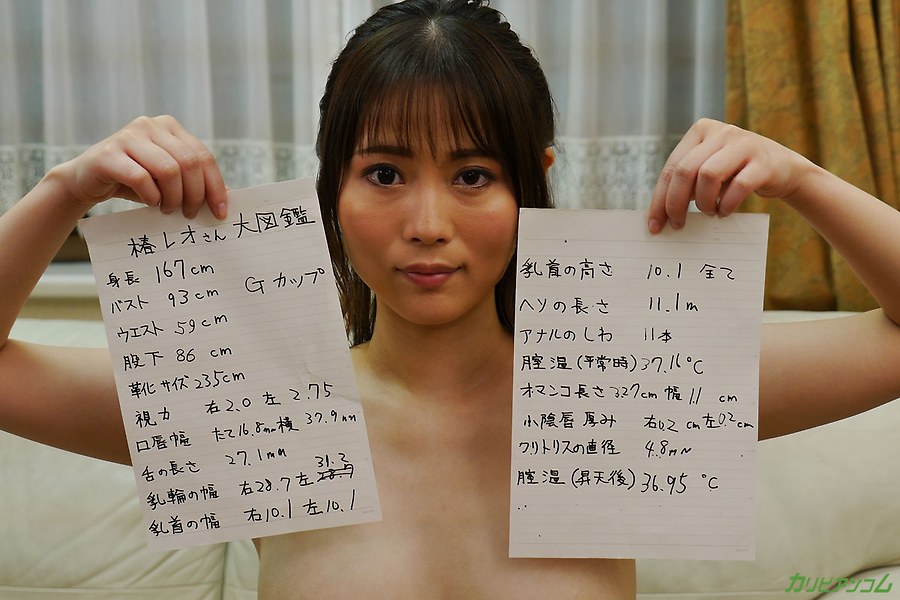 椿レオさん大図鑑
身長 167cm
バスト 93cm Gカップ
ウエスト 59cm
股下 86cm
靴サイズ 23.5cm
視力 右2.0 左2.75
口唇幅 たて16.8mm 横 37.9mm
舌の長さ 27.1mm
乳輪の幅 右28.7 左28.7 31.2
乳首の幅 右10.1 左10.1
乳首の高さ 10.1 全て
ヘソの長さ 11.1m
アナルのしわ 11本
膣温(平常時)37.16℃
オマンコ長さ 327cm 幅 1.1 cm
小陰唇 厚み 右0.2cm 左0.2cm
クリトリスの直径 4.8mm
膣温(昇天後)36.95℃
カリビアンコム